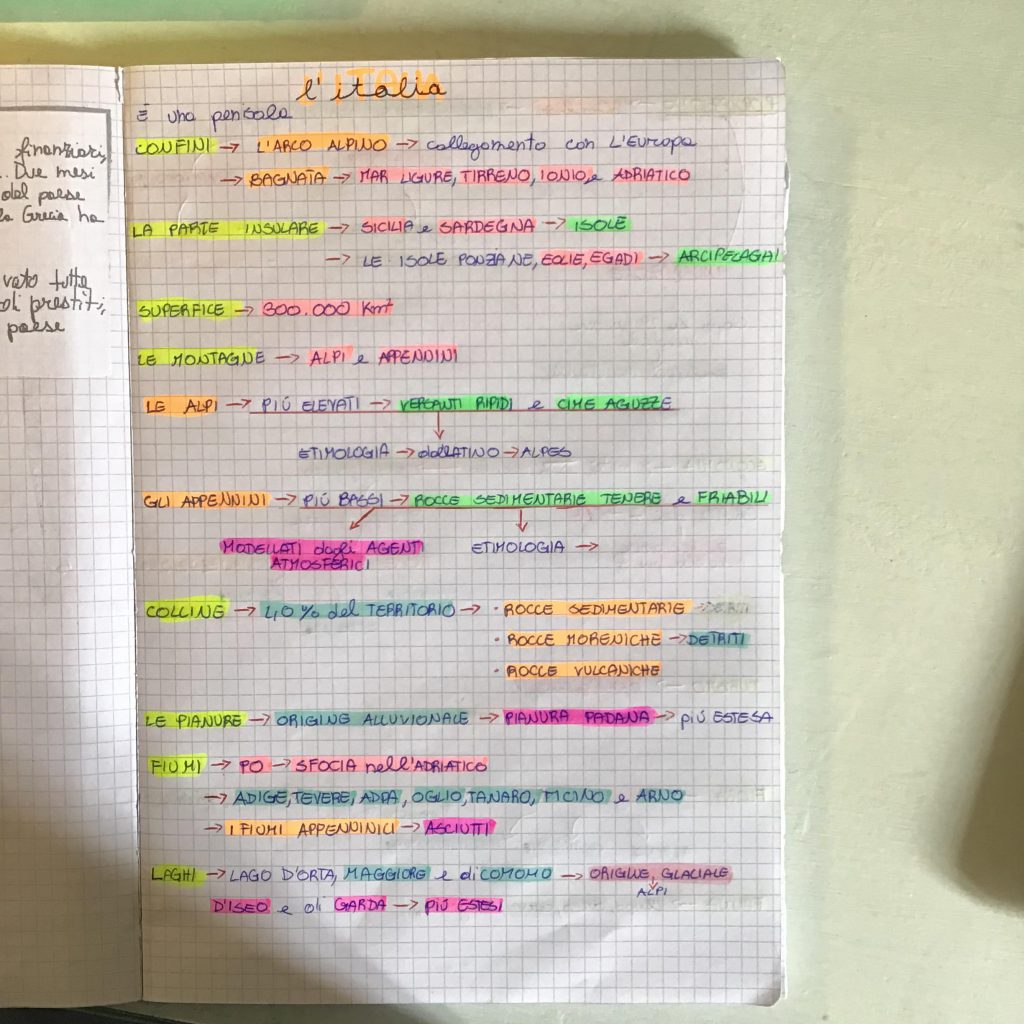 finanziari,
.. Due mesi
del paese
la Grecia ha
vato tutte
oli prestiti,
paese
l'italia
È una penisola
CONFINI → L'ARCO ALPINO → collegamento con L'Europa
→ BAGNATA → MAR LIGURE, TIRRENO, IONIO e ADRIATICO
LA PARTE INSULARE → SICILIA e SARDEGNA → ISOLE
→ LE ISOLE PONZIANE, EOLIE, EGADI → ARCIPELAGHI
SUPERFICE → 300.000 Km²
LE MONTAGNE → ALPI e APPENNINI
LE ALPI → PIÚ ELEVATI → VERSANTI RIPIDI e CIME AGUZZE
ETIMOLOGIA → dal LATINO → ALPES
GLI APPENNINI → PIÚ BASSI → ROCCE SEDIMENTARIE TENERE e FRIABILI
MODELLATI dagli AGENTI ETIMOLOGIA →
ATMOSFERICI
COLLINE → 40% del TERRITORIO → · ROCCE SEDIMENTARIE
· ROCCE MORENICHE → DETRITI
· ROCCE VULCANICHE
LE PIANURE → ORIGINE ALLUVIONALE → PIANURA PADANA → PIÚ ESTESA
FIUMI → PO → SFOCIA nell'ADRIATICO
→ ADIGE, TEVERE, ADDA, OGLIO, TANARO, TICINO e ARNO
→ I FIUMI APPENNINICI → ASCIUTTI
LAGHI → LAGO D'ORTA, MAGGIORE e di COMOMO → ORIGINE GLACIALE
ALPI
D'ISEO e di GARDA → PIÚ ESTESI